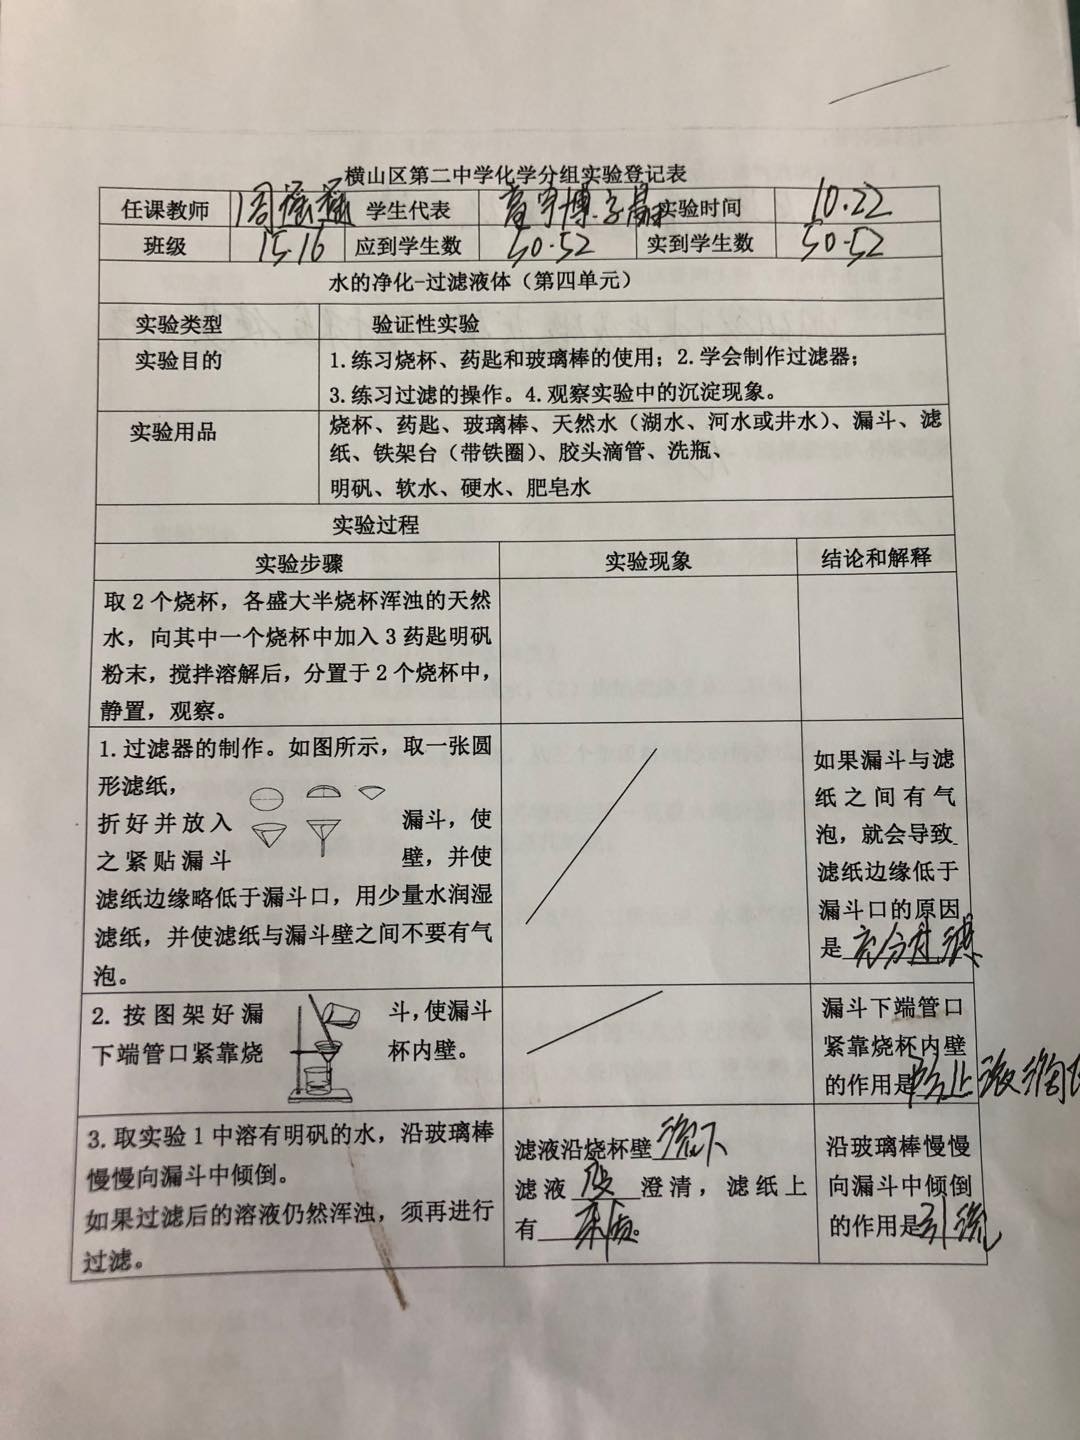 横山区第二中学化学分组实验登记表
任课教师 周 学生代表 实验时间 10.22
班级 15.16 应到学生数 50.52 实到学生数 50.52
水的净化-过滤液体（第四单元）
实验类型 验证性实验
实验目的 1.练习烧杯、药匙和玻璃棒的使用；2.学会制作过滤器；
3.练习过滤的操作。4.观察实验中的沉淀现象。
实验用品 烧杯、药匙、玻璃棒、天然水（湖水、河水或井水）、漏斗、滤
纸、铁架台（带铁圈）、胶头滴管、洗瓶、
明矾、软水、硬水、肥皂水
实验过程
实验步骤 实验现象 结论和解释
取2个烧杯，各盛大半烧杯浑浊的天然
水，向其中一个烧杯中加入3药匙明矾
粉末，搅拌溶解后，分置于2个烧杯中，
静置，观察。
1.过滤器的制作。如图所示，取一张圆
形滤纸，
折好并放入 漏斗，使
之紧贴漏斗 壁，并使
滤纸边缘略低于漏斗口，用少量水润湿
滤纸，并使滤纸与漏斗壁之间不要有气
泡。
如果漏斗与滤
纸之间有气
泡，就会导致
滤纸边缘低于
漏斗口的原因
是 充分过滤
2.按图架好漏 斗，使漏斗
下端管口紧靠烧 杯内壁。
漏斗下端管口
紧靠烧杯内壁
的作用是防止液
3.取实验1中溶有明矾的水，沿玻璃棒
慢慢向漏斗中倾倒。
如果过滤后的溶液仍然浑浊，须再进行
过滤。
滤液沿烧杯壁流下
滤液 澄清，滤纸上
有 。
沿玻璃棒慢慢
向漏斗中倾倒
的作用是引流